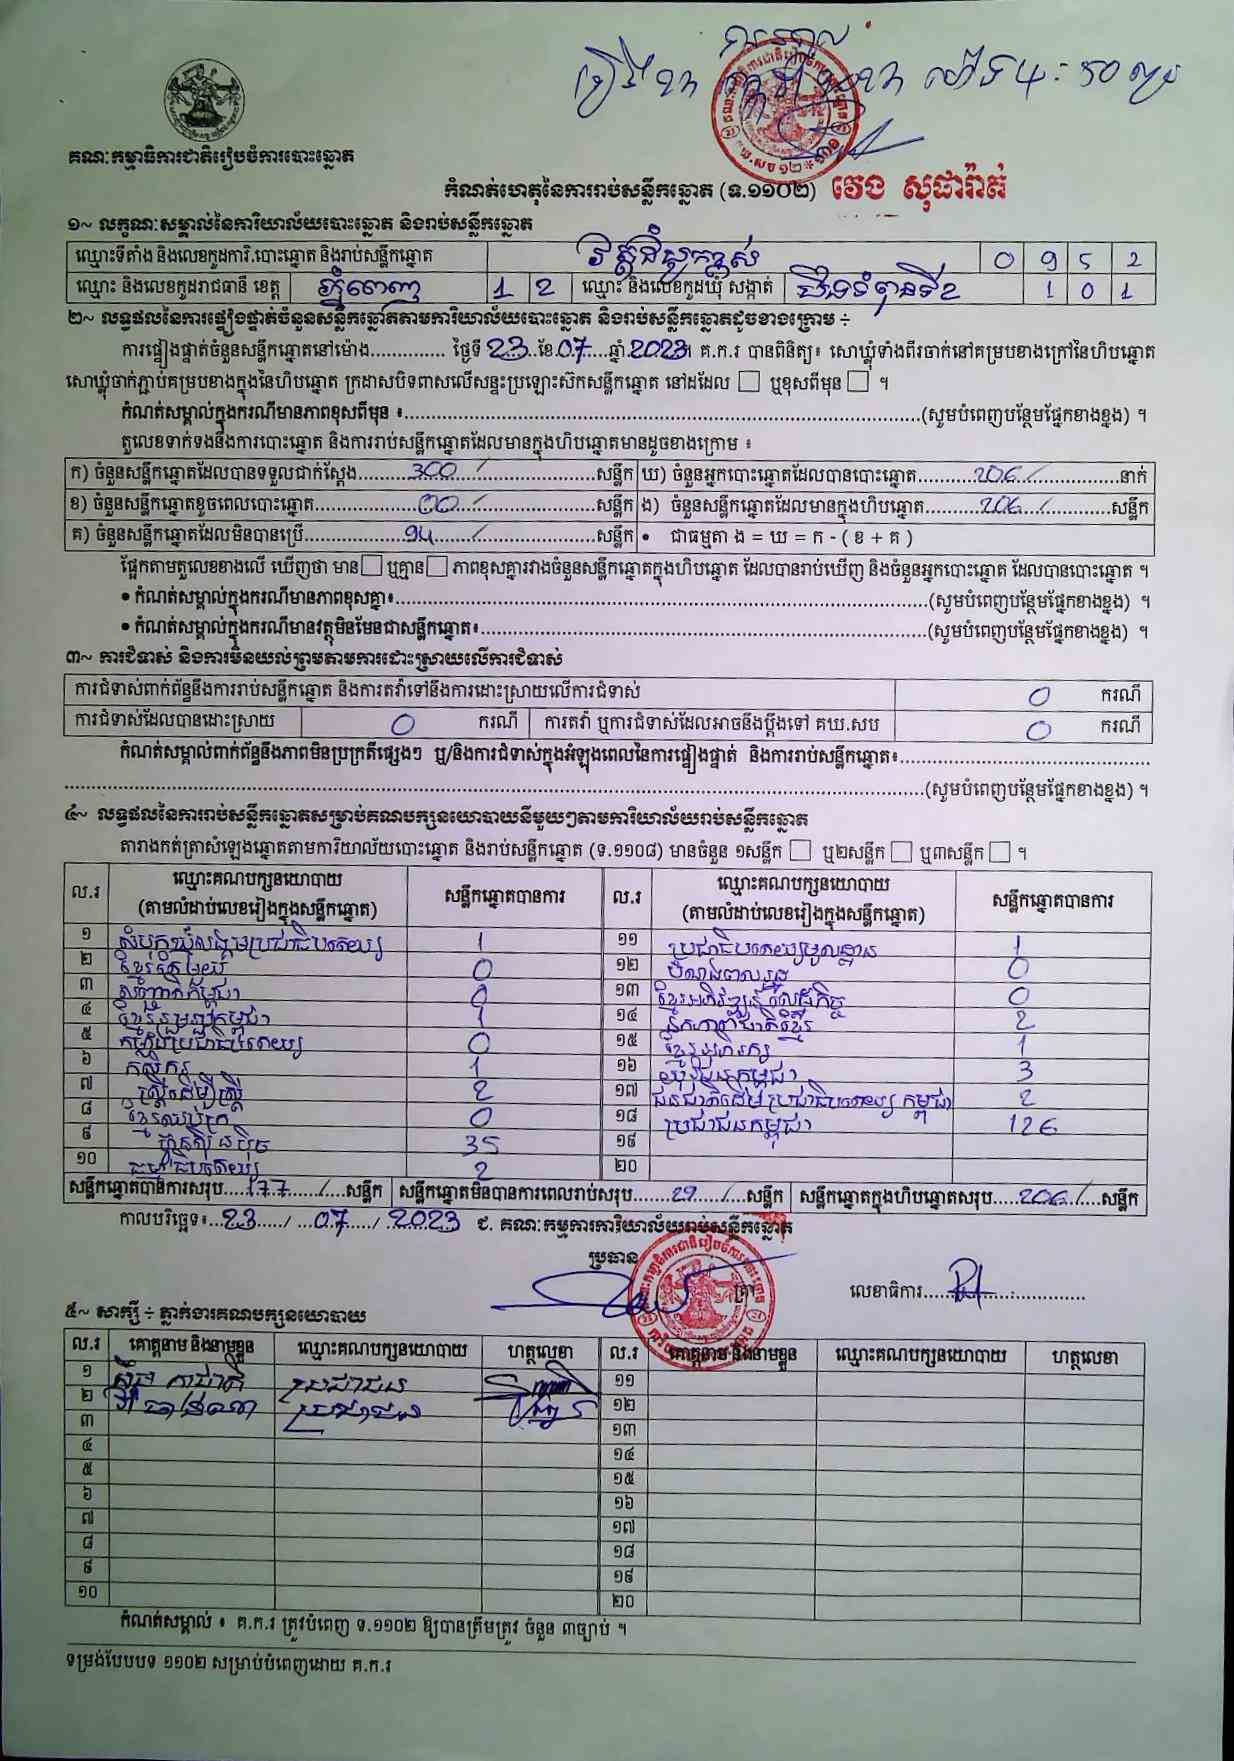 គណៈកម្មាធិការជាតិរៀបចំការបោះឆ្នោត
កំណត់ហេតុនៃការរាប់សន្លឹកឆ្នោត (ទ.១១០២) វេង សុផារ៉ាត់
១~ លក្ខណៈសម្គាល់នៃការិយាល័យបោះឆ្នោត និងរាប់សន្លឹកឆ្នោត
ឈ្មោះទីតាំង និងលេខកូដការិ.បោះឆ្នោត និងរាប់សន្លឹកឆ្នោត 0 9 5 2
ឈ្មោះ និងលេខកូដរាជធានី ខេត្ត ភ្នំពេញ 1 2 ឈ្មោះ និងលេខកូដឃុំ សង្កាត់ បឹងទំពុនទី២ 1 0 1
២~ លទ្ធផលនៃការផ្ទៀងផ្ទាត់ចំនួនសន្លឹកឆ្នោតតាមការិយាល័យបោះឆ្នោត និងរាប់សន្លឹកឆ្នោតដូចខាងក្រោម ÷
ការផ្ទៀងផ្ទាត់ចំនួនសន្លឹកឆ្នោតនៅម៉ោង.............. ថ្ងៃទី 23 ខែ 07 ឆ្នាំ 2023។ គ.ក.រ បានពិនិត្យ៖ សោឃ្លុំទាំងពីរចាក់នៅគម្របខាងក្រៅនៃហិបឆ្នោត
សោឃ្លុំចាក់ភ្ជាប់គម្របខាងក្នុងនៃហិបឆ្នោត ក្រដាសបិទពាសលើសន្ទះប្រឡោះស៊កសន្លឹកឆ្នោត នៅដដែល □ ឬខុសពីមុន □ ។
កំណត់សម្គាល់ក្នុងករណីមានភាពខុសពីមុន ៖..............(សូមបំពេញបន្ថែមផ្នែកខាងខ្នង) ។
តួលេខទាក់ទងនឹងការបោះឆ្នោត និងការរាប់សន្លឹកឆ្នោតដែលមានក្នុងហិបឆ្នោតមានដូចខាងក្រោម ៖
ក) ចំនួនសន្លឹកឆ្នោតដែលបានទទួលជាក់ស្តែង 300/ សន្លឹក ឃ) ចំនួនអ្នកបោះឆ្នោតដែលបានបោះឆ្នោត 206/ នាក់
ខ) ចំនួនសន្លឹកឆ្នោតខូចពេលបោះឆ្នោត 00/ សន្លឹក ង) ចំនួនសន្លឹកឆ្នោតដែលមានក្នុងហិបឆ្នោត 206/ សន្លឹក
គ) ចំនួនសន្លឹកឆ្នោតដែលមិនបានប្រើ 94/ សន្លឹក • ជាធម្មតា ង = ឃ = ក - ( ខ + គ )
ផ្អែកតាមតួលេខខាងលើ ឃើញថា មាន □ ឬគ្មាន □ ភាពខុសគ្នារវាងចំនួនសន្លឹកឆ្នោតក្នុងហិបឆ្នោត ដែលបានរាប់ឃើញ និងចំនួនអ្នកបោះឆ្នោត ដែលបានបោះឆ្នោត ។
• កំណត់សម្គាល់ក្នុងករណីមានភាពខុសគ្នា៖..............(សូមបំពេញបន្ថែមផ្នែកខាងខ្នង) ។
• កំណត់សម្គាល់ក្នុងករណីមានវត្ថុមិនមែនជាសន្លឹកឆ្នោត៖..............(សូមបំពេញបន្ថែមផ្នែកខាងខ្នង) ។
៣~ ការជំទាស់ និងការមិនយល់ព្រមតាមការដោះស្រាយលើការជំទាស់
ការជំទាស់ពាក់ព័ន្ធនឹងការរាប់សន្លឹកឆ្នោត និងការតវ៉ាទៅនឹងការដោះស្រាយលើការជំទាស់ 0 ករណី
ការជំទាស់ដែលបានដោះស្រាយ 0 ករណី ការតវ៉ា ឬការជំទាស់ដែលអាចនឹងប្តឹងទៅ គឃ.សប 0 ករណី
កំណត់សម្គាល់ពាក់ព័ន្ធនឹងភាពមិនប្រក្រតីផ្សេងៗ ឬ/និងការជំទាស់ក្នុងអំឡុងពេលនៃការផ្ទៀងផ្ទាត់ និងការរាប់សន្លឹកឆ្នោត៖..............
..............(សូមបំពេញបន្ថែមផ្នែកខាងខ្នង) ។
៤~ លទ្ធផលនៃការរាប់សន្លឹកឆ្នោតសម្រាប់គណបក្សនយោបាយនីមួយៗតាមការិយាល័យរាប់សន្លឹកឆ្នោត
តារាងកត់ត្រាសំឡេងឆ្នោតតាមការិយាល័យបោះឆ្នោត និងរាប់សន្លឹកឆ្នោត (ទ.១១០៨) មានចំនួន ១សន្លឹក □ ឬ២សន្លឹក □ ឬ៣សន្លឹក □ ។
ល.រ ឈ្មោះគណបក្សនយោបាយ (តាមលំដាប់លេខរៀងក្នុងសន្លឹកឆ្នោត) សន្លឹកឆ្នោតបានការ ល.រ ឈ្មោះគណបក្សនយោបាយ (តាមលំដាប់លេខរៀងក្នុងសន្លឹកឆ្នោត) សន្លឹកឆ្នោតបានការ
១ សំបុកឃ្មុំសង្គមប្រជាធិបតេយ្យ 1 ១១ ប្រជាធិបតេយ្យមូលដ្ឋាន 1
២ ខ្មែរតែមួយ 0 ១២ បំណងពលរដ្ឋ 0
៣ សញ្ជាតិកម្ពុជា 0 ១៣ ខ្មែរអភិវឌ្ឍន៍សេដ្ឋកិច្ច 0
៤ ខ្មែររួបរួមកម្ពុជា 1 ១៤ ឯកភាពជាតិខ្មែរ 2
៥ កម្លាំងប្រជាធិបតេយ្យ 0 ១៥ ខ្មែរអភិរក្ស 1
៦ កសិករ 1 ១៦ យុវជនកម្ពុជា 3
៧ ស្ត្រីដើម្បីស្ត្រី 2 ១៧ ជនជាតិដើមប្រជាធិបតេយ្យកម្ពុជា 2
៨ ខ្មែរឈប់ក្រ 0 ១៨ ប្រជាជនកម្ពុជា 126
៩ ហ៊្វុនស៊ិនប៉ិច 35 ១៩
១០ ធម្មាធិបតេយ្យ 2 ២០
សន្លឹកឆ្នោតបានការសរុប 177/ សន្លឹក សន្លឹកឆ្នោតមិនបានការពេលរាប់សរុប 29/ សន្លឹក សន្លឹកឆ្នោតក្នុងហិបឆ្នោតសរុប 206/ សន្លឹក
កាលបរិច្ឆេទ៖ 23 / 07 / 2023 ជ. គណៈកម្មការការិយាល័យរាប់សន្លឹកឆ្នោត
ប្រធាន ត្រា លេខាធិការ
៥~ សាក្សី ÷ ភ្នាក់ងារគណបក្សនយោបាយ
ល.រ គោត្តនាម និងនាមខ្លួន ឈ្មោះគណបក្សនយោបាយ ហត្ថលេខា ល.រ គោត្តនាម និងនាមខ្លួន ឈ្មោះគណបក្សនយោបាយ ហត្ថលេខា
១ ប្រជាជន ១១
២ ប្រជាជន ១២
៣ ១៣
៤ ១៤
៥ ១៥
៦ ១៦
៧ ១៧
៨ ១៨
៩ ១៩
១០ ២០
កំណត់សម្គាល់ ៖ គ.ក.រ ត្រូវបំពេញ ទ.១១០២ ឱ្យបានត្រឹមត្រូវ ចំនួន ៣ច្បាប់ ។
ទម្រង់បែបបទ ១១០២ សម្រាប់បំពេញដោយ គ.ក.រ